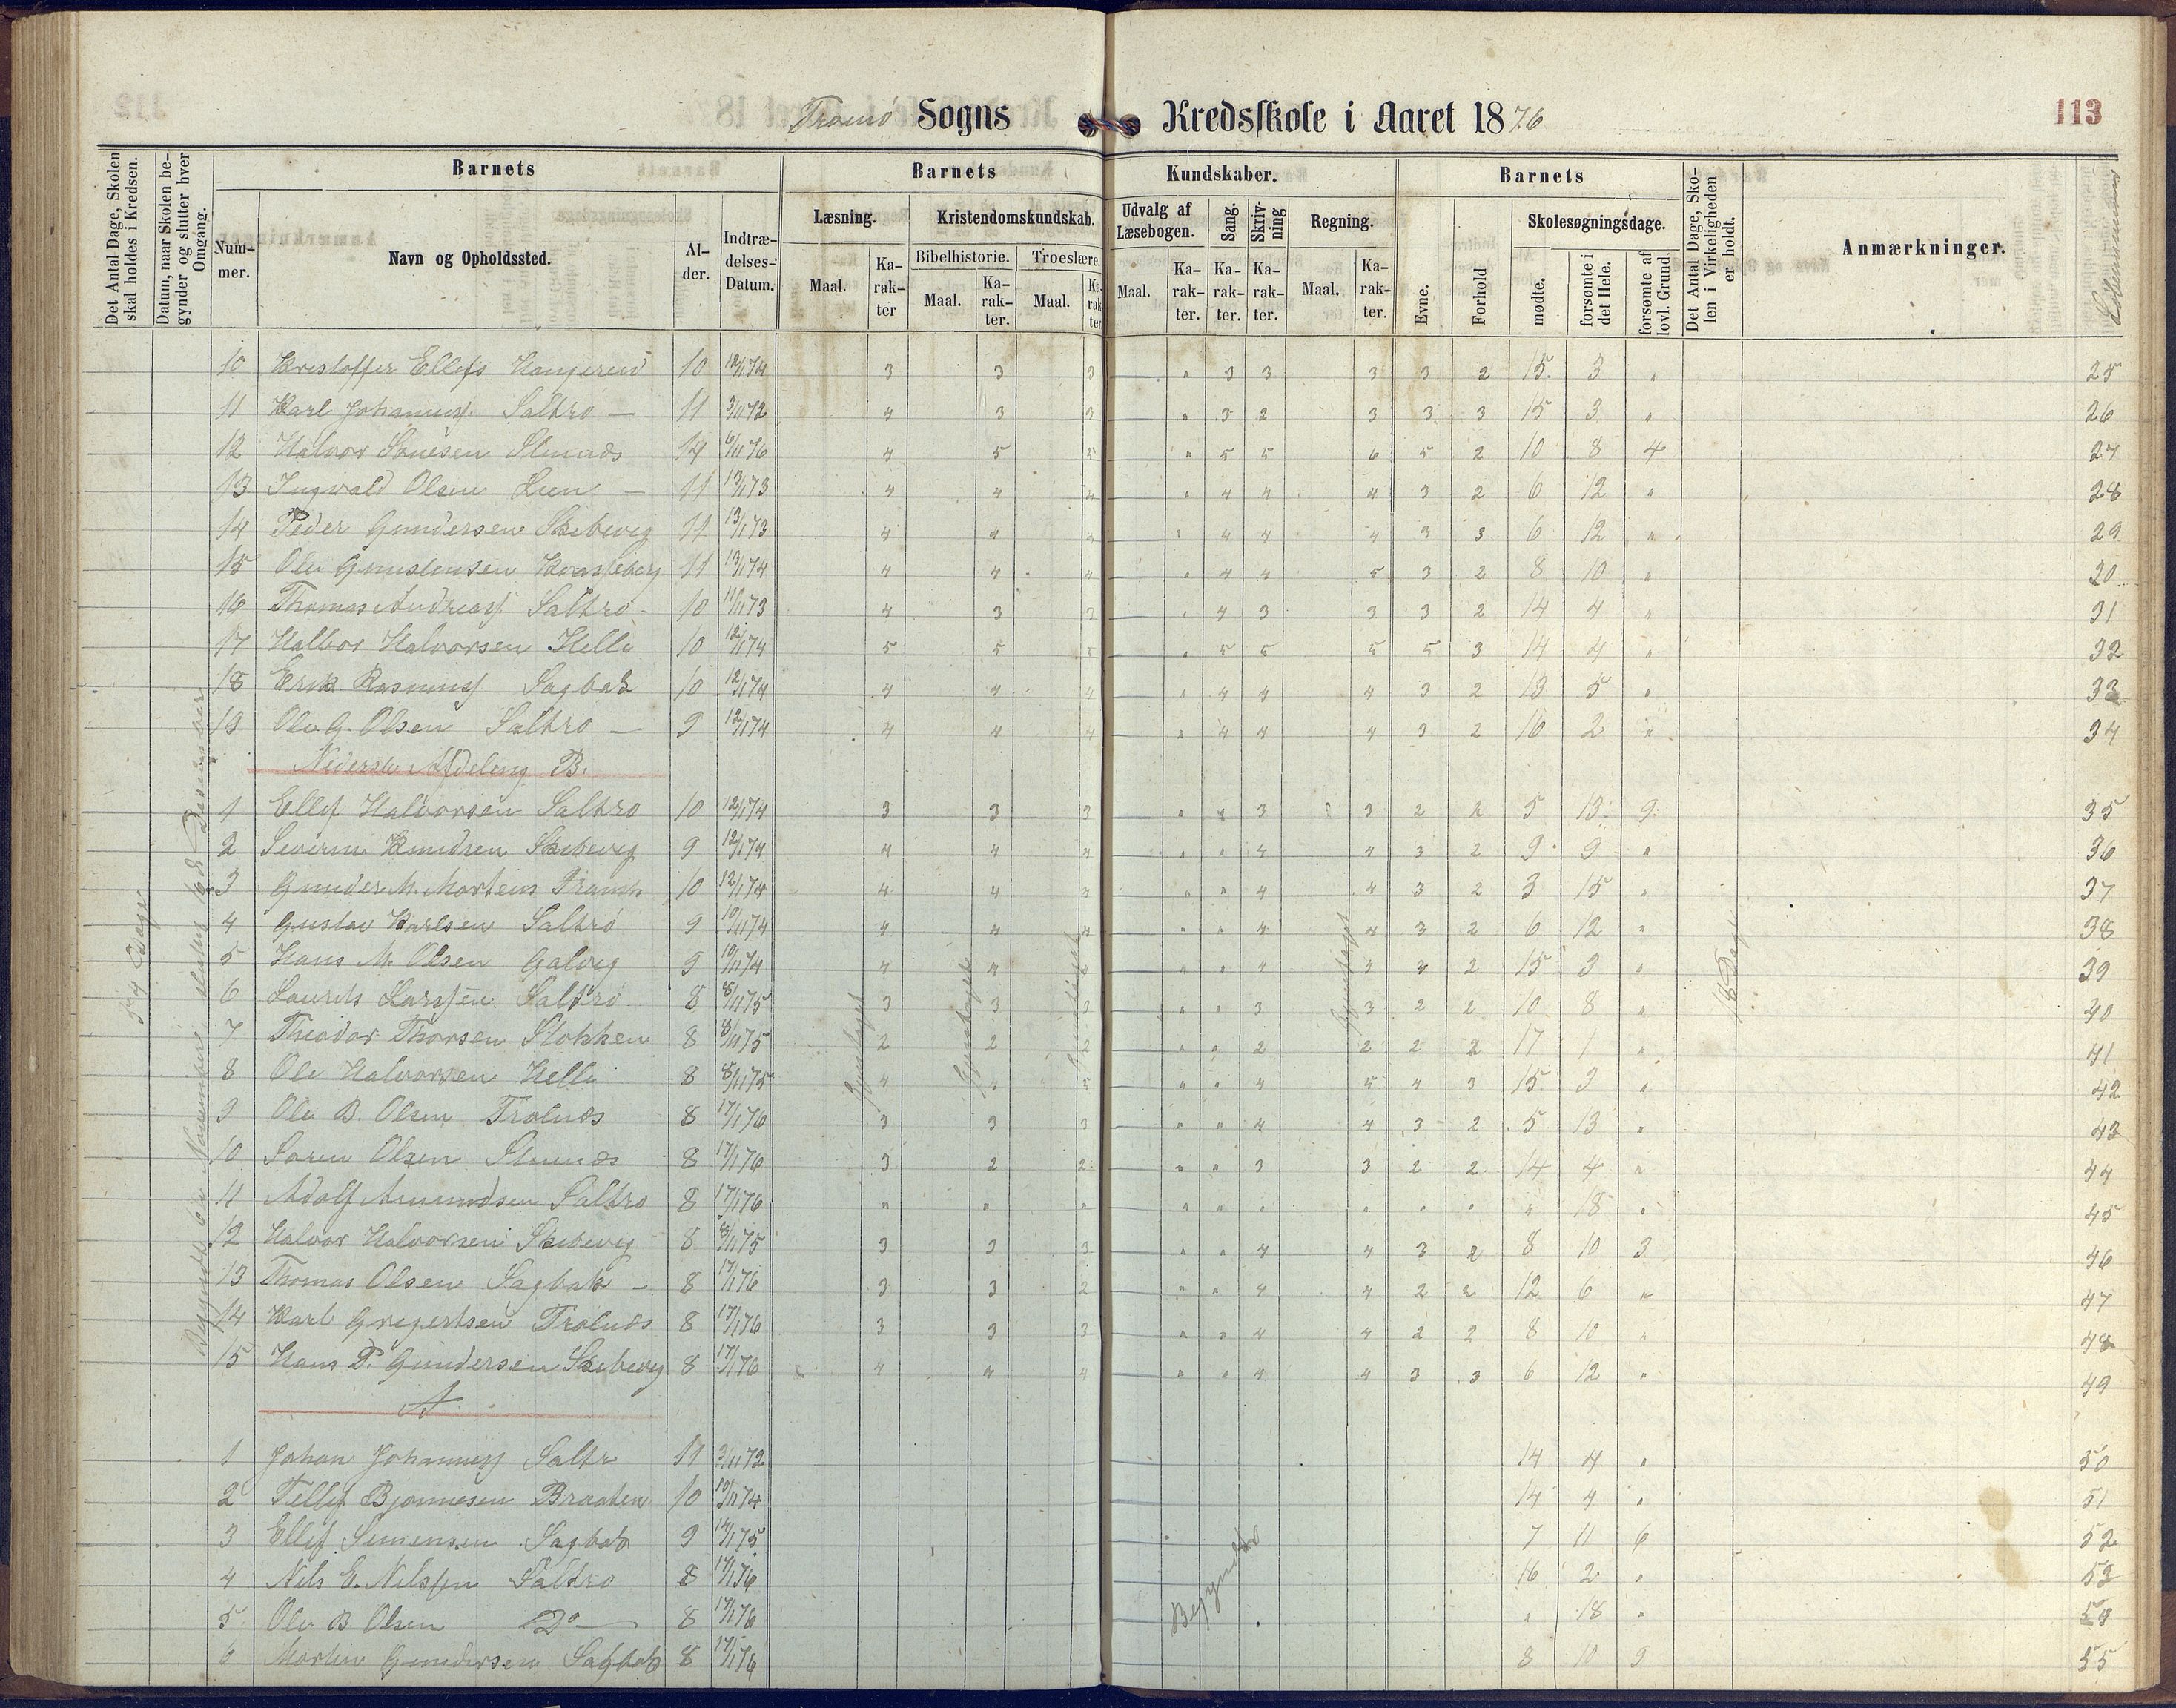 Tromø Sogns Kredsskole i Aaret 1876
113
Det Antal Dage, Skolen skal holdes i Kredsen.
Datum, naar Skolen begynder og slutter hver Omgang.
Barnets
Nummer.
Navn og Opholdssted.
Alder.
Indtrædelses-Datum.
Barnets Kundskaber.
Læsning.
Maal.
Karakter
Kristendomskundskab.
Bibelhistorie.
Maal.
Karakter.
Troeslære.
Maal.
Karakter
Udvalg af Læsebogen.
Maal.
Karakter.
Sang.
Karakter.
Skrivning
Karakter.
Regning.
Maal.
Karakter.
Barnets
Evne.
Forhold
Skolesøgningsdage.
mødte.
forsømte i det Hele.
forsømte af lovl. Grund.
Det Antal Dage, Skolen i Virkeligheden er holdt.
Anmærkninger.
10 Kristoffer Ellefs 10 12/1 74 3 3 3 " 3 3 3 3 2 15 3 " 25
11 Karl Johannes Saltrø — 11 3/11 72 4 3 3 " 3 2 3 3 3 15 3 " 26
12 Halvor 14 6/11 76 4 5 5 " 5 5 6 5 2 10 8 4 27
13 Ingvald Olsen — 11 13/1 73 4 4 4 " 4 4 4 3 2 6 12 " 28
14 Peder Gundersen Skibevig 11 13/1 73 4 4 4 " 4 4 4 3 3 6 12 " 29
15 Ole 11 13/1 74 4 4 4 " 4 4 5 3 2 8 10 "
16 Thomas Andreass Saltrø - 10 11/1 73 4 3 3 " 4 3 3 3 2 14 4 " 31
17 Halvor Halvorsen Helle 10 12/1 74 5 5 5 " 5 5 5 5 3 14 4 " 32
18 Erik Rasmuss Sagbak 10 12/1 74 4 4 4 " 4 4 4 3 2 13 5 " 33
19 Ole G. Olsen Saltrø — 9 12/1 74 4 4 4 " 4 4 4 3 2 16 2 " 34
Nederste Afdeling B.
1 Ellef Halvorsen Saltrø 10 12/1 74 3 3 3 " " 3 3 2 2 5 13 9 35
2 Severin Knudsen Skibevig 9 12/1 74 4 4 4 " " 4 4 3 2 9 9 " 36
3 Gunder M. Mortens 10 12/1 74 4 4 4 " " 4 4 3 2 3 15 " 37
4 Gustav Karlsen Saltrø 9 10/11 74 4 4 4 " " 4 4 3 2 6 12 " 38
5 Hans M. Olsen Galvig 9 10/11 74 4 4 " " 4 2 15 3 " 39
6 Laurits Larssen Saltrø 8 8/11 75 3 3 3 " " 3 3 2 2 10 8 " 40
7 Theodor Thorsen Stokken 8 8/11 75 2 2 2 " " 2 2 2 2 17 1 " 41
8 Ole Halvorsen Helle 8 8/11 75 4 " 5 " " 4 5 4 3 15 3 " 42
9 Ole B. Olsen Tralnæs 8 17/1 76 3 3 3 " " 4 4 3 2 5 13 " 43
10 Søren Olsen 8 17/1 76 3 2 2 " " 3 3 2 2 14 4 " 44
11 Adolf Amundsen Saltrø 8 17/1 76 " " " " " " " " " " 18 " 45
12 Halvor Halvorsen Skibevig 8 8/11 75 3 3 3 " " 4 4 3 2 8 10 3 46
13 Thomas Olsen Sagbak — 8 17/1 76 3 3 2 " " 4 4 2 2 12 6 " 47
14 Karl Gregertsen Tralnæs 8 17/1 76 3 3 3 " " 4 4 2 2 8 10 " 48
15 Hans P. Gundersen Skibevig 8 17/1 76 4 4 4 " " 4 4 3 3 6 12 " 49
A
1 Johan Johanness Saltr 11 3/11 72 14 4 " 50
2 Tellef Bjønnesen Braaten 10 10/11 74 14 4 " 51
3 Ellef Simensen Sagbak 9 75 7 11 6 52
4 Nils E. Nilssen Saltrø 8 17/1 76 16 2 " 53
5 Ole B. Olsen Do — 8 17/1 76 " 18 " 54
6 Martin Gundersen Sagbak 8 17/1 76 8 10 9 55
54 Dage
Begyndte 6te November sluttet 16de December
Gjentaget
Gjentaget
Gjentaget
Gjentaget
18 Dage
Begyndte